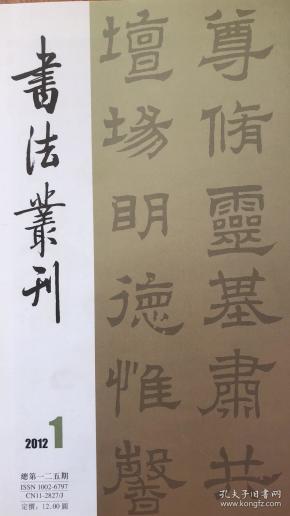 書法叢刊
尊脩靈基肅共
壇場明德惟馨
2012 1
總第一二五期
ISSN 1002-6797
CN11-2827/J
定價：12.00圓
孔夫子旧书网